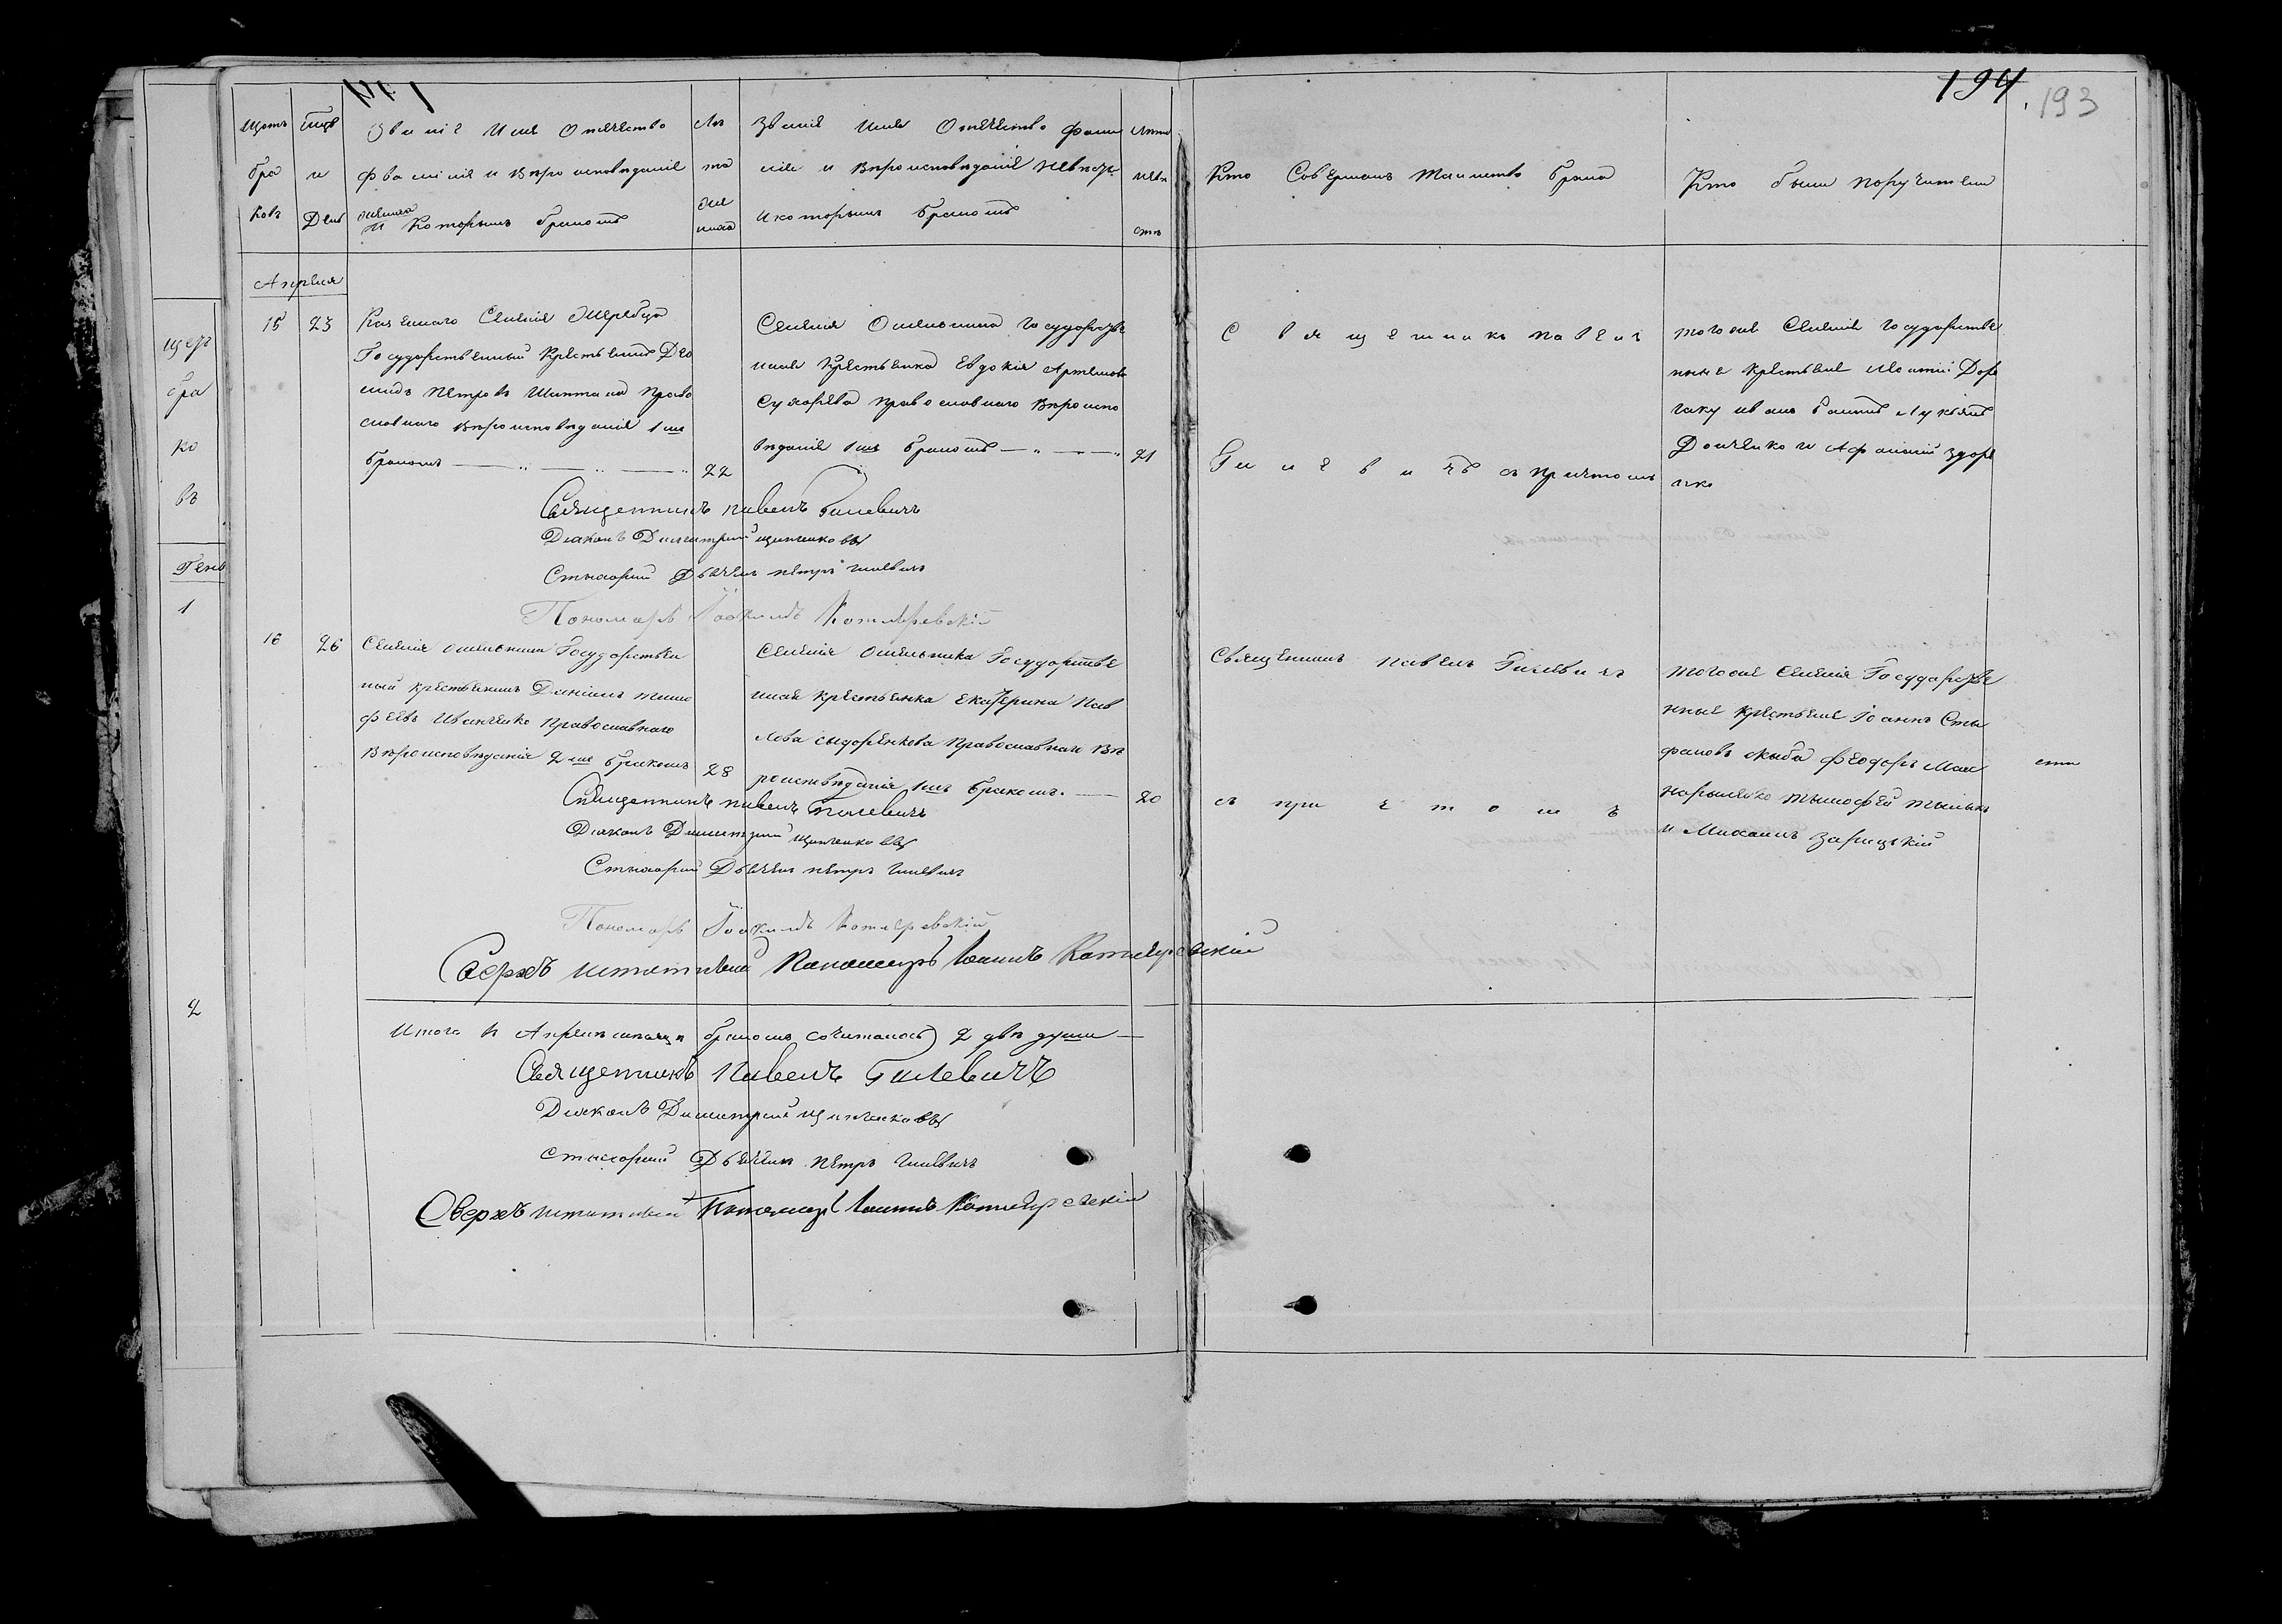 194
193
Щотъ
бра
ковъ
Мцъ
и
День
Званіе Имя Отечество
фамилія и Вѣроисповѣданіе
жениха
и Которымъ бракомъ
Лѣ
та
же
ниха
Званіе Имя Отечество фами
лія и Вѣроисповѣданіе невѣсты
и которымъ бракомъ
Лѣта
невѣ
сты
Кто Совершалъ Таинство брака
Кто были поручители
Апреля
15 23
Казеннаго Селенія Жеребца
Государственный Крестьянинъ
Петровъ Право
славнаго Вѣроисповѣданія 1мъ
бракомъ 22
Селенія Государстве
нная Крестьянка Евдокія Артемова
Сухарева Православнаго Вѣроиспо
вѣданія 1мъ бракомъ 21
Священникъ Павелъ
Гилевичъ съ причтомъ
того же Селенія Государстве
нные Крестьяне
Иванъ Лукьянъ
Донченко и Афанасій
Священникъ Павелъ Гилевичъ
Діаконъ Димитрій
Стихарный Дьячекъ Петръ Гилевичъ
Пономарь Іоакимъ Котляревскій
16 26
Селенія Государствен
ный крестьянинъ Даніилъ Тимо
феевъ Иванченко Православнаго
Вѣроисповѣданія 2мъ бракомъ 28
Селенія Государстве
нная крестьянка Екатерина Пав
лова Сыдоренкова Православнаго Вѣ
роисповѣданія 1мъ бракомъ 20
Священникъ Павелъ Гилевичъ
съ причтомъ
того же Селенія Государстве
нные крестьяне Іоаннъ Сте
фановъ Скыба Феодоръ Мак
Тымофей
и Михаилъ Зарицкій
Священникъ Павелъ Гилевичъ
Діаконъ Димитрій
Стихарный Дьячекъ Петръ Гилевичъ
Пономарь Іоакимъ Котляревскій
Сверхъ штатный Паномарь Іоаннъ Котляревскій
Итого въ Апрелѣ мѣсяцѣ бракомъ сочиталось 2 двѣ души
Священникъ Павелъ Гилевичъ
Діаконъ Димитрій
Стихарный Дьячекъ Петръ Гилевичъ
Сверхъ штатный Пономарь Іоаннъ Котляревскій
щер
бра
ко
въ
Генв
1
2